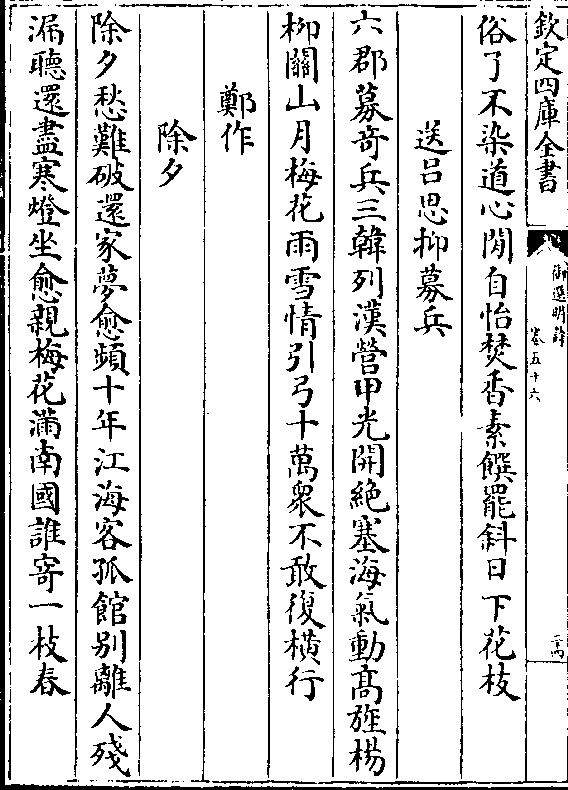 欽定四庫全書
御選明詩
卷五十六
俗了不染道心閒自怡焚香素饌罷斜日下花枝
送呂思抑募兵
六郡募奇兵三韓列漢營甲光開絕塞海氣動高旌楊
柳關山月梅花雨雪情引弓十萬衆不敢復橫行
鄭作
除夕
除夕愁難破還家夢愈頻十年江海客孤館别離人殘
漏聽還盡寒燈坐愈親梅花滿南國誰寄一枝春